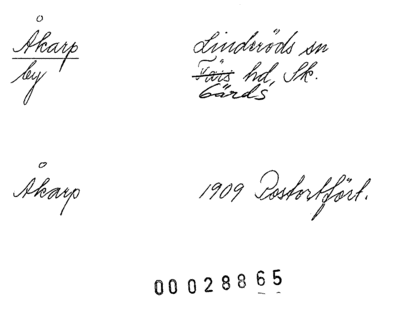 Åkarp Linderöds sn
by Färs hd, Sk.
Gärds
Åkarp 1909 Postortfört.
00 028865